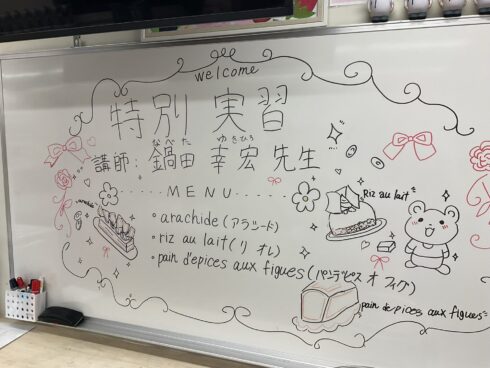 welcome
特別 実習
なべた ゆきひろ
講師: 鍋田 幸宏 先生
MENU
・arachide(アラシード)
・riz au lait(リ オ レ)
・pain d'epices aux figues(パンデピス オ フィグ)
arachide
Riz au lait
pain de pices aux figues